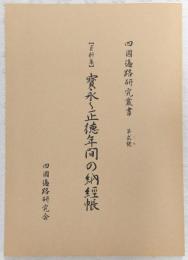 四國遍路研究叢書 第弐號
【資料集】
寳永〜正徳年間の納經帳
四國遍路研究会